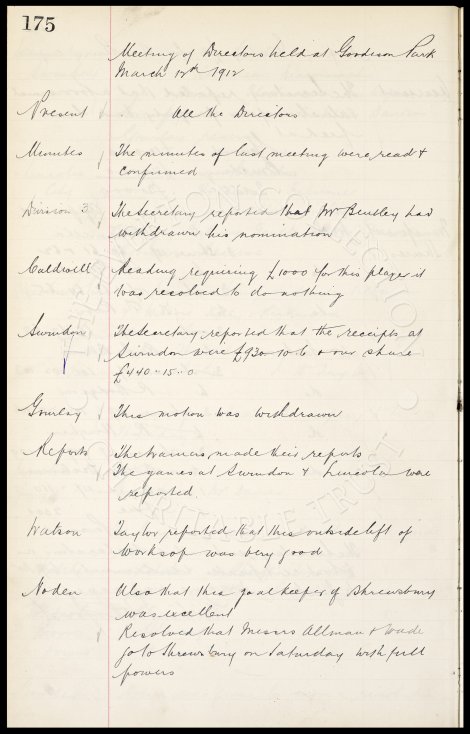 175
Meeting of Directors held at Goodison Park
March 12th 1912
Present All the Directors
Minutes The minutes of last meeting were read &
confirmed
Division 3 The Secretary reported that Mr Bentley had
withdrawn his nomination
Caldwell Reading requiring £1000 for this player it
was resolved to do nothing
Swindon The Secretary reported that the receipts at
Swindon were £930-10-6 & our share
£440-15-0
Gourlay This motion was withdrawn
Reports The trainers made their reports
The games at Swindon & Lincoln were
reported.
Watson Taylor reported that this outside left of
Worksop was very good
Noden Also that this goalkeeper of Shrewsbury
was excellent
Resolved that Messrs Allman & Wade
go to Shrewsbury on Saturday with full
powers